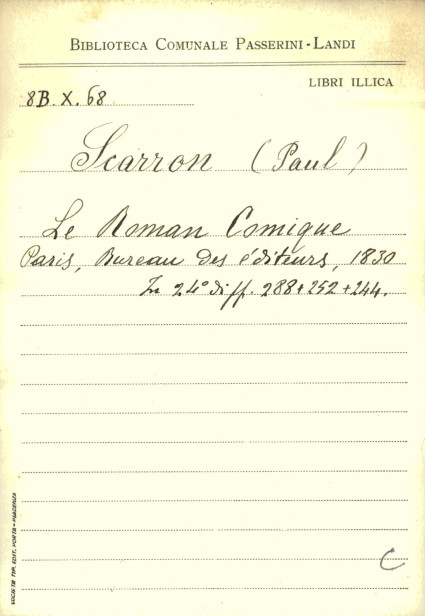 BIBLIOTECA COMUNALE PASSERINI-LANDI
LIBRI ILLICA
8B. X. 68
Scarron (Paul)
Le Roman Comique
Paris, Bureau des éditeurs, 1830
In 24° diff. 288+252+244.
SOCIETÀ TIP. EDIT. PORTA - PIACENZA
C